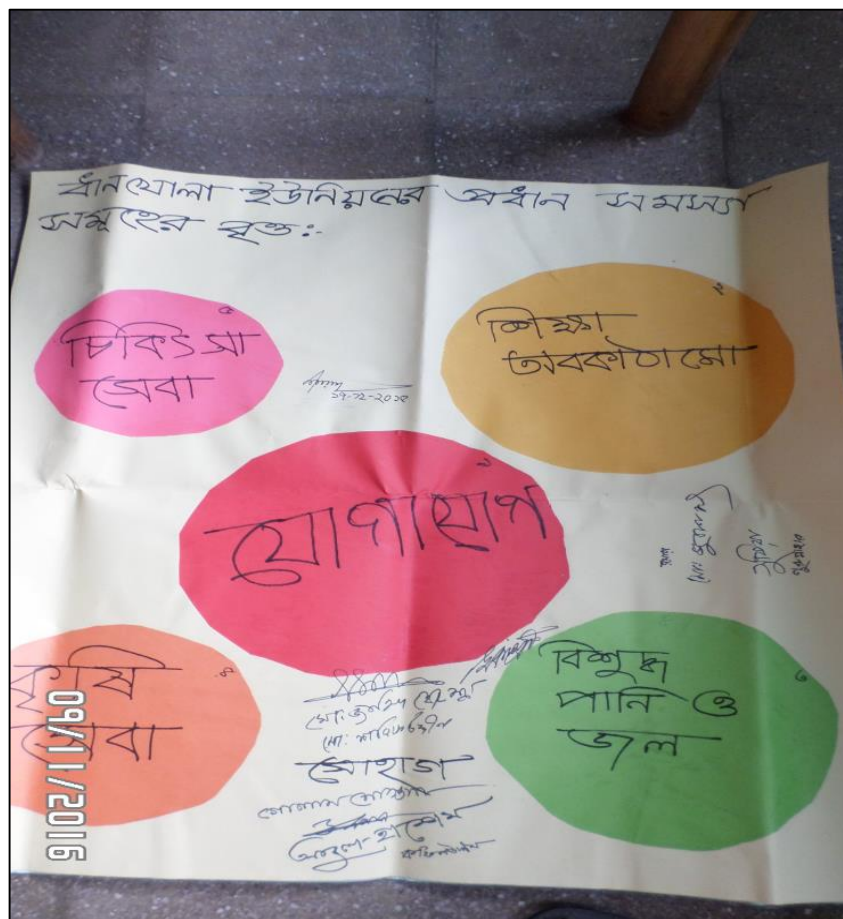 ধানখোলা ইউনিয়নের প্রধান সমস্যা
সমূহের বৃত্ত:-
৫
চিকিৎসা
সেবা
২
শিক্ষা
অবকাঠামো
১
যোগাযোগ
৪
কৃষি
সেবা
৩
বিশুদ্ধ
পানি ও
জল
সোহাগ
আবুল হাশেম
09/11/2016